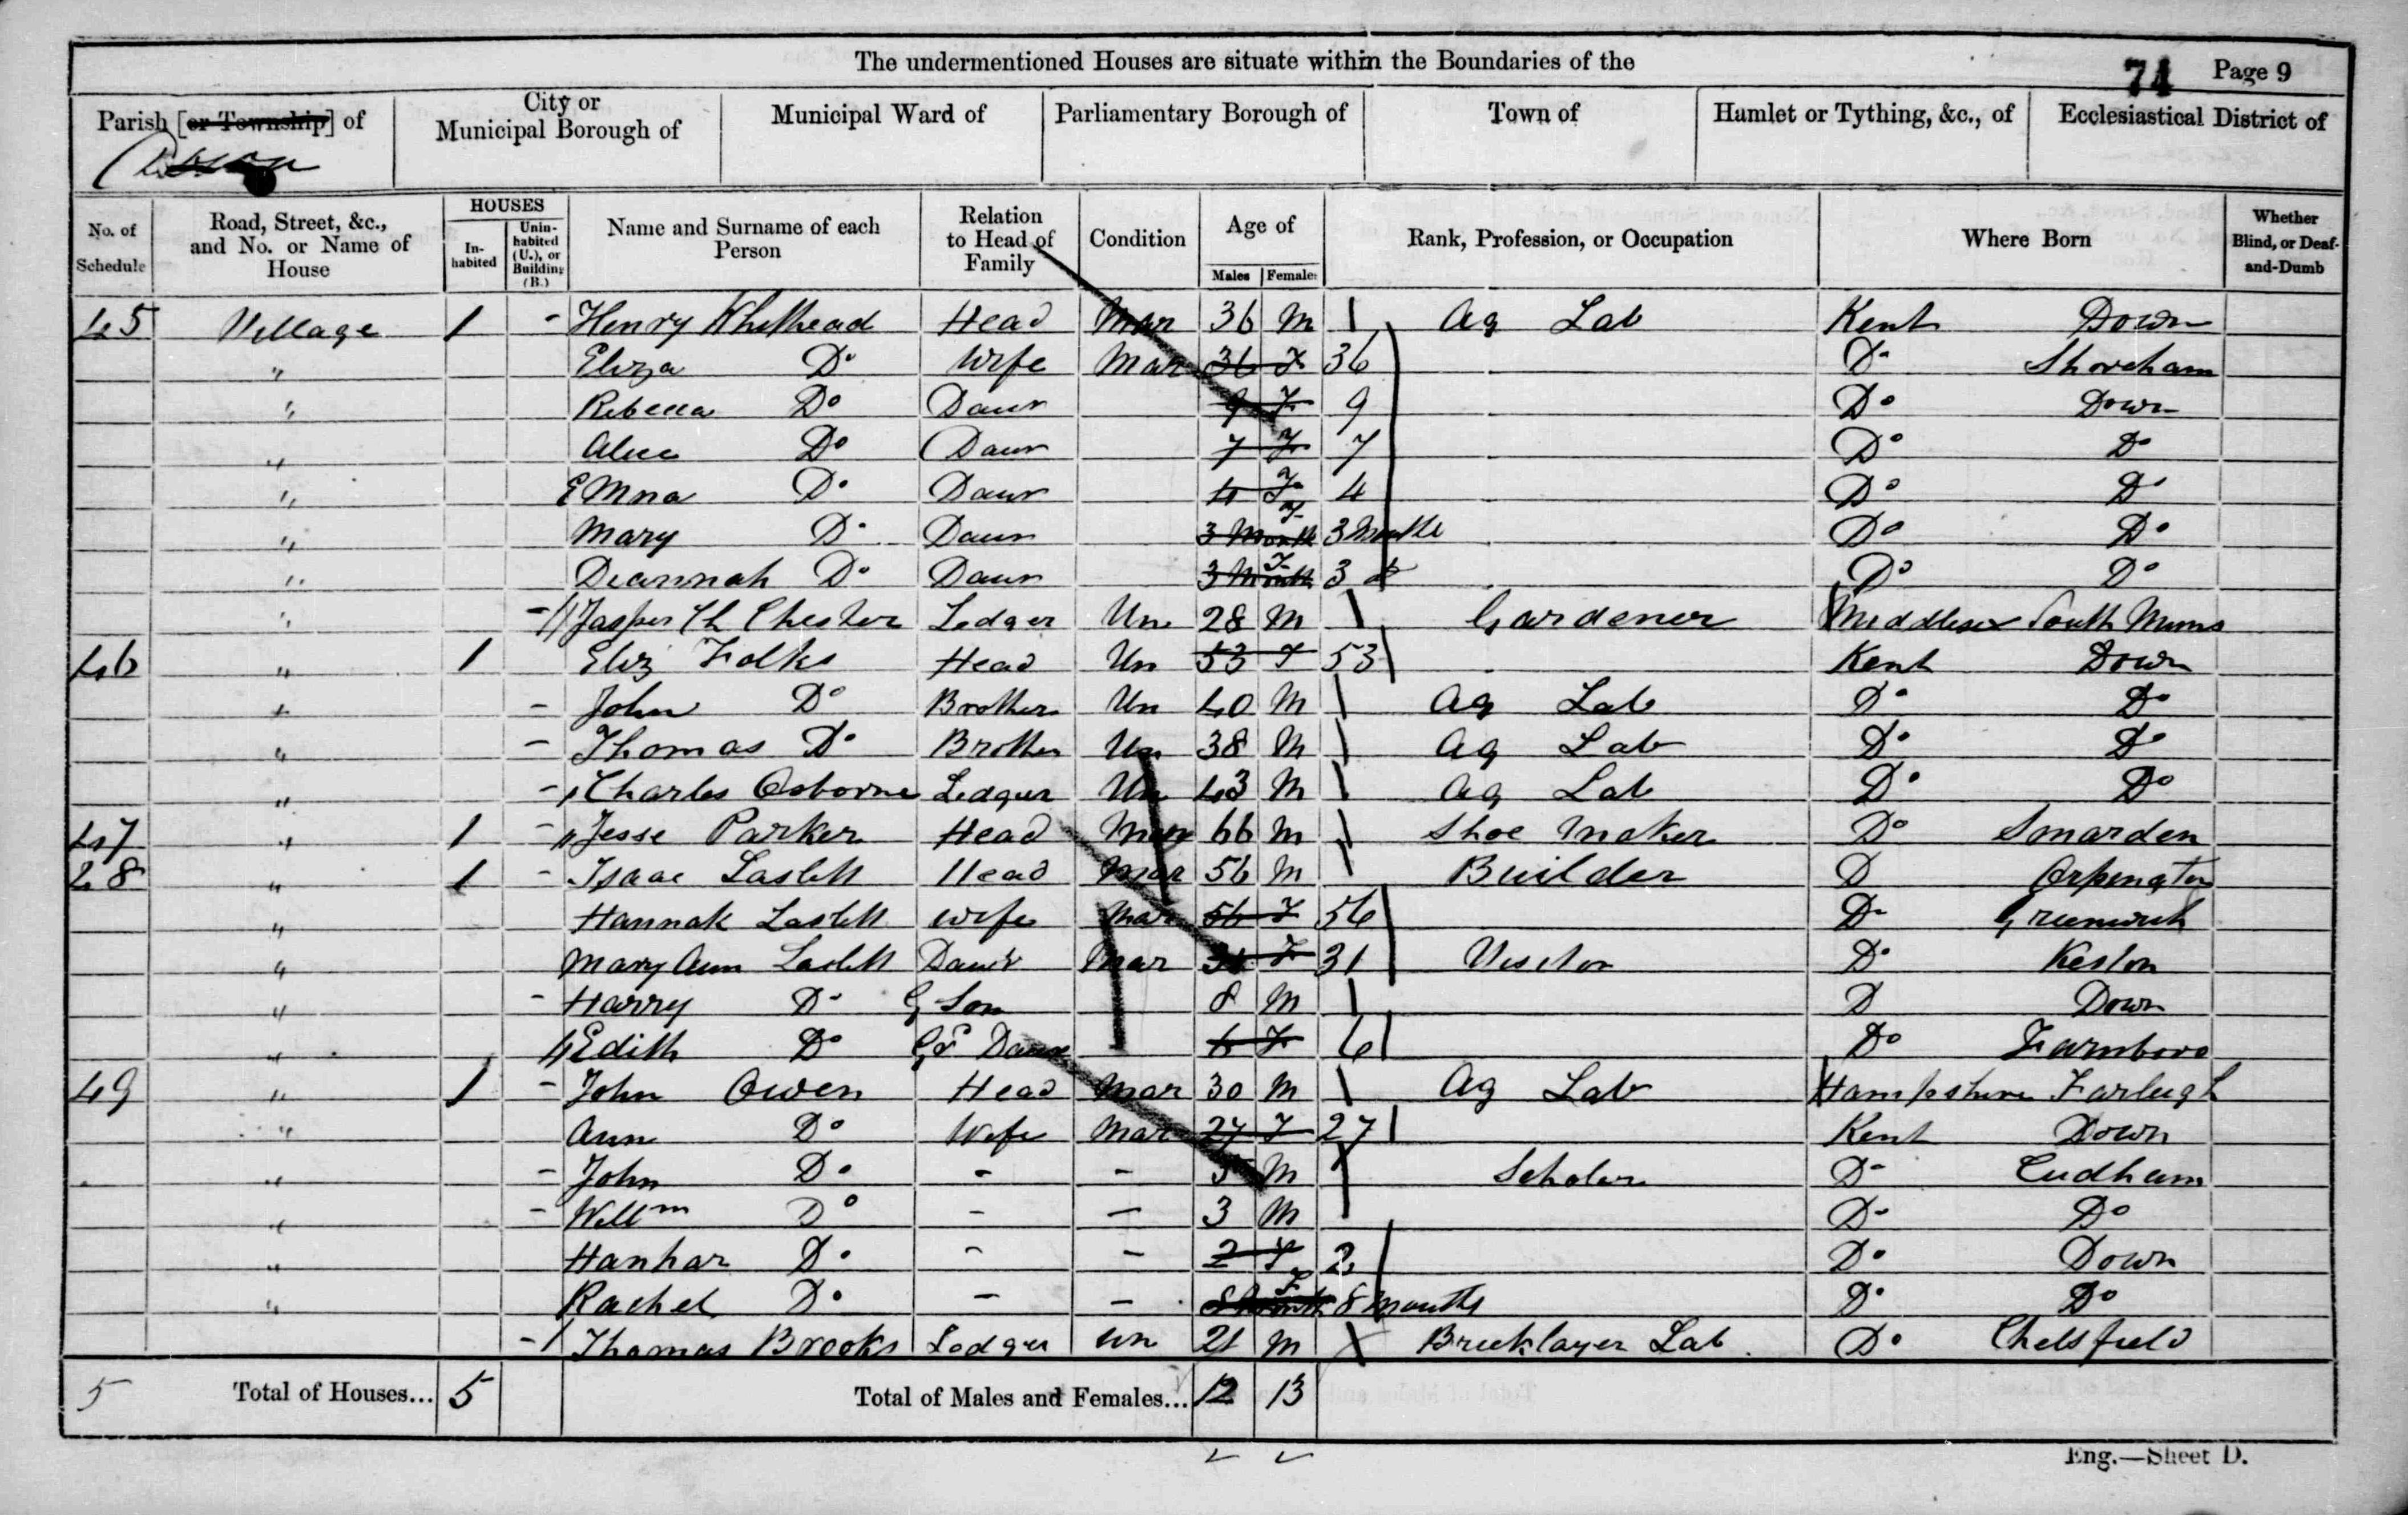 The undermentioned Houses are situate within the Boundaries of the 74 Page 9
Parish [or Township] of City or Municipal Borough of Municipal Ward of Parliamentary Borough of Town of Hamlet or Tything, &c., of Ecclesiastical District of
No. of Schedule Road, Street, &c., and No. or Name of House HOUSES In-habited Unin-habited (U.), or Building (B.) Name and Surname of each Person Relation to Head of Family Condition Age of Males Females Rank, Profession, or Occupation Where Born Whether Blind, or Deaf-and-Dumb
45 Village 1 - Henry Head Mar 36 M Ag Lab Kent Down
" Eliza Do Wife Mar 36 F 36 Do Shoreham
" Rebecca Do Daur 9 F 9 Do Down
" Alice Do Daur 7 F 7 Do Do
" Emna Do Daur 4 F 4 Do Do
" Mary Do Daur 3 Month F 3 Months Do Do
" Deannah Do Daur 3 Month F 3 Do Do
" - Jasper Chester Lodger Un 28 M Gardener Middlesex South Mims
46 " 1 Eliz Folks Head Un 53 F 53 Kent Down
" - John Do Brother Un 40 M Ag Lab Do Do
" - Thomas Do Brother Un 38 M Ag Lab Do Do
" - Charles Osborne Lodger Un 43 M Ag Lab Do Do
47 " 1 - Jesse Parker Head Mar 66 M Shoe Maker Do Smarden
28 " 1 - Isaac Laslett Head Mar 56 M Builder D Orpington
" Hannah Laslett Wife Mar 56 F 56 Do Greenwich
" Mary Ann Laslett Daur Mar 31 F 31 Visitor Do Keston
" - Harry Do G Son 8 M D Down
" Edith Do Gd Daur 6 F 6 Do Farnboro
49 " 1 - John Owen Head Mar 30 M Ag Lab Hampshire Farleigh
" Ann Do Wife Mar 27 F 27 Kent Down
" - John Do - - 5 M Scholar Do Cudham
" - Willm Do - - 3 M Do Do
" Hanhar Do - - 2 F 2 Do Down
" Rachel Do - - 8 Month F 8 months Do Do
- Thomas Brooks Lodger un 21 M Bricklayer Lab Do Chelsfield
5 Total of Houses... 5 Total of Males and Females... 12 13
Eng.—Sheet D.